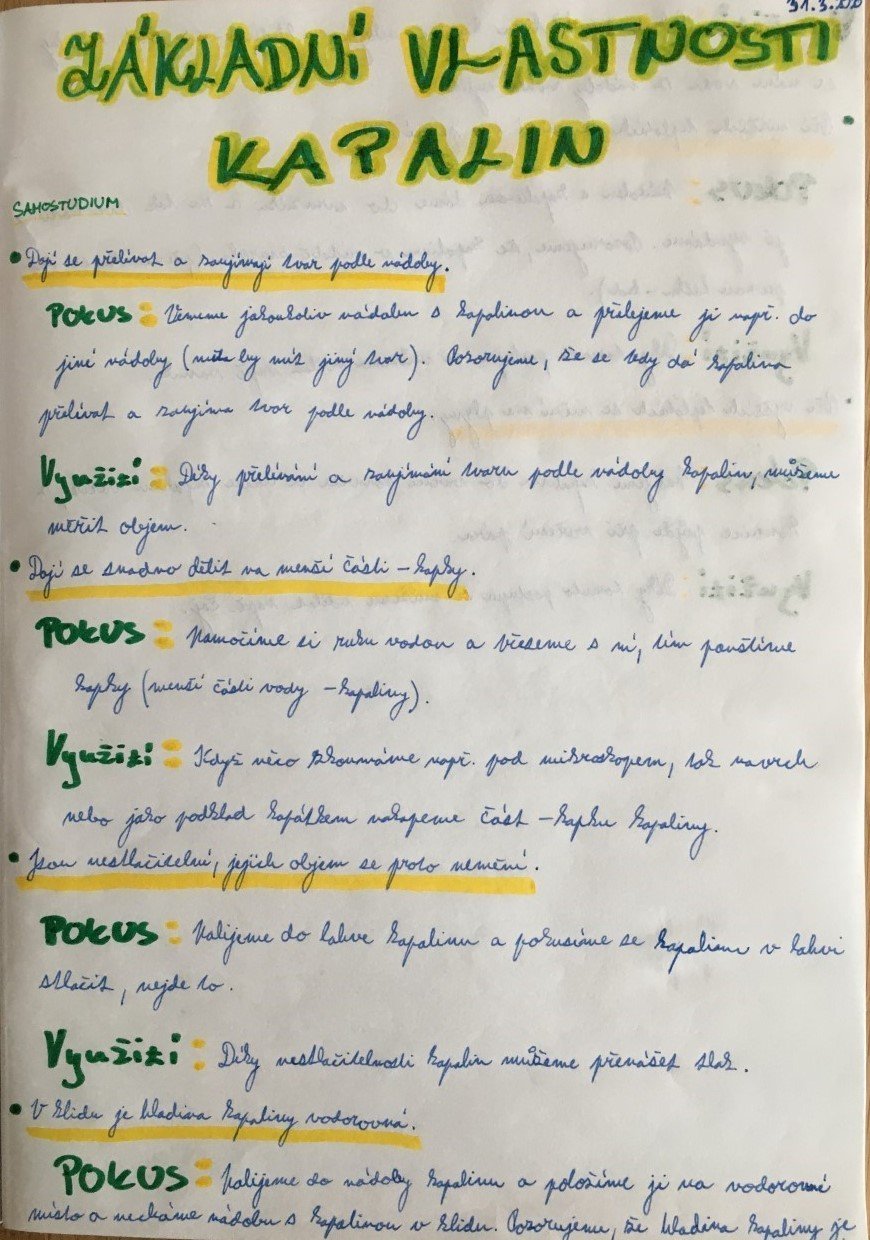 31.3.
ZÁKLADNÍ VLASTNOSTI
KAPALIN
SAMOSTUDIUM
• Dají se přelívat a zaujímají tvar podle nádoby.
POKUS: Vememe jakoukoliv nádobu s kapalinou a přelejeme ji např. do
jiné nádoby (měla by mít jiný tvar). Pozorujeme, že se tedy dá kapalina
přelívat a zaujímá tvar podle nádoby.
Využití: Díky přelívání a zaujímání tvaru podle nádoby kapalin, můžeme
měřit objem.
• Dají se snadno dělit na menší části - kapky.
POKUS: Namočíme si ruku vodou a třeseme s ní, tím pouštíme
kapky (menší části vody - kapaliny).
Využití: Když něco zkoumáme např. pod mikroskopem, tak navrch
nebo jako podklad kapátkem nakapeme část - kapku kapaliny.
• Jsou nestlačitelní, jejich objem se proto nemění.
POKUS: Nalijeme do lahve kapalinu a pokusíme se kapalinu v lahvi
stlačit, nejde to.
Využití: Díky nestlačitelnosti kapalin můžeme přenášet tlak.
• V klidu je hladina kapaliny vodorovná.
POKUS: Nalijeme do nádoby kapalinu a položíme ji na vodorovné
místo a necháme nádobu s kapalinou v klidu. Pozorujeme, že hladina kapaliny je